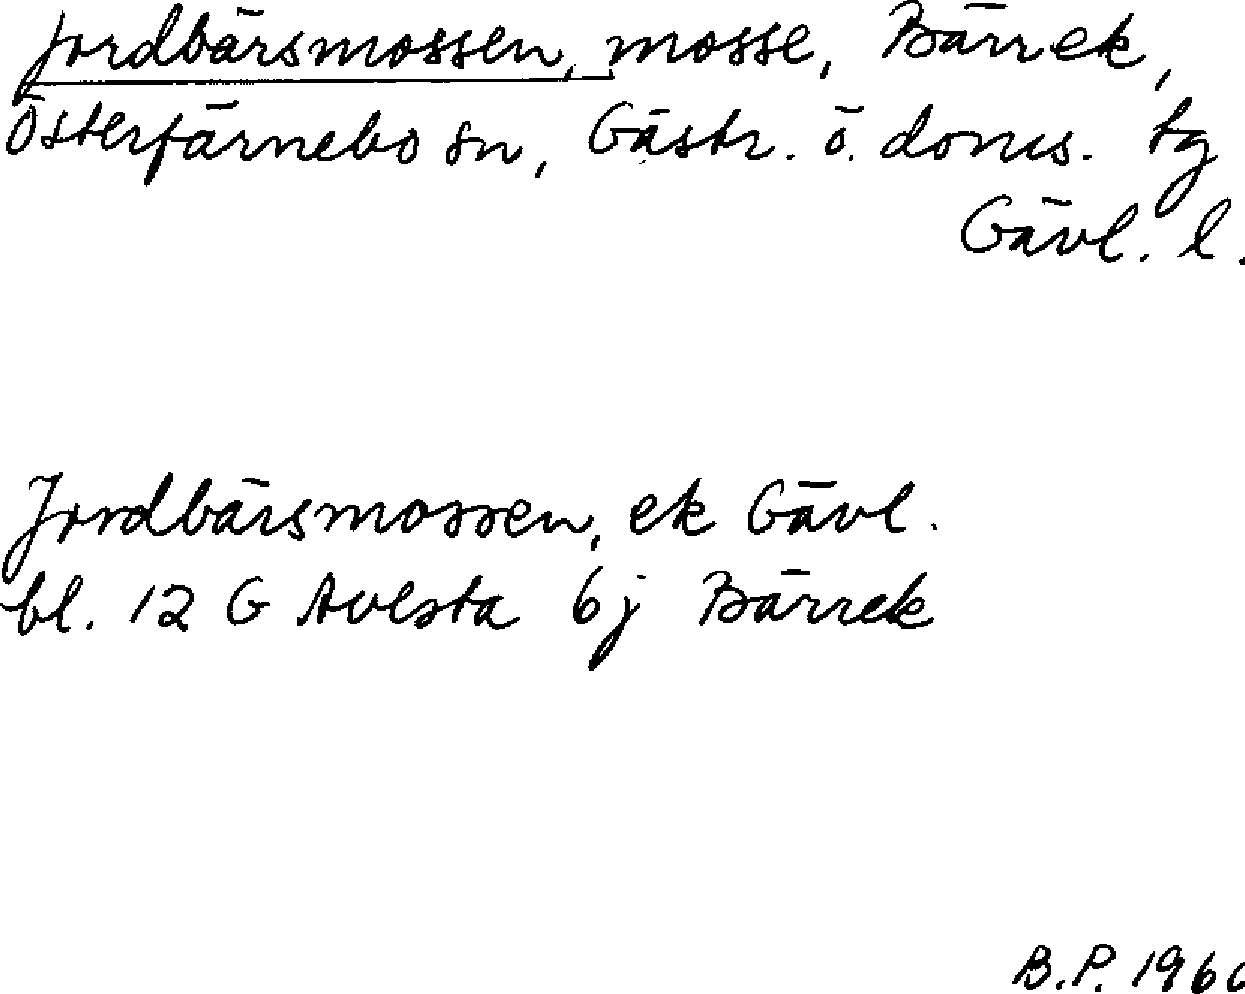 Jordbärsmossen, mosse, Bärrek,
Österfärnebo sn, Gästr. ö. doms. tg
Gävl. l.
Jordbärsmossen, ek Gävl.
bl. 12 G Avesta 6j Bärrek
B.P. 1966